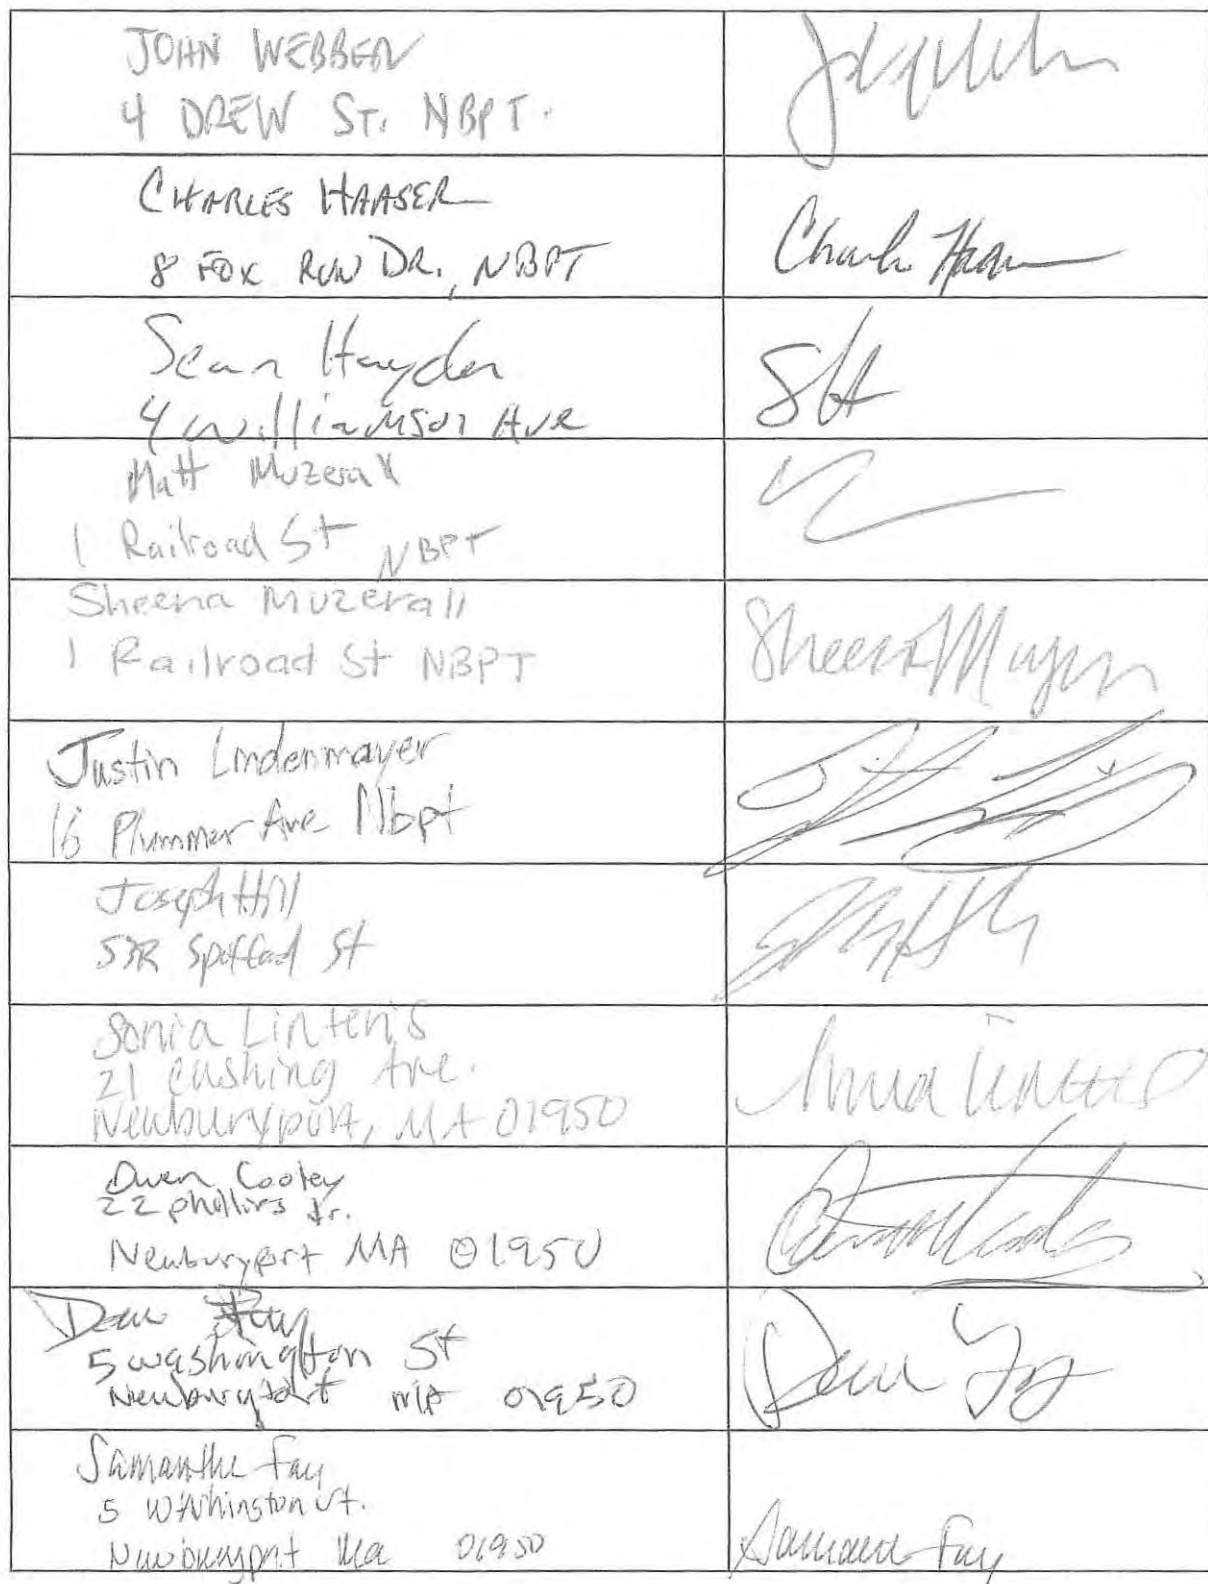 JOHN WEBBER
4 DREW ST. NBPT.
CHARLES HAASER
8 FOX RUN DR., NBPT
Charles Haaser
Sean Hayden
4 Williamson Ave
SH
Matt Muzerall
1 Railroad St NBPT
Sheena Muzerall
1 Railroad St NBPT
Sheena
Justin Lindenmayer
16 Plummer Ave Nbpt
Joseph Hill
53R Spofford St
Sonia Linteris
21 Cushing Ave.
Newburyport, MA 01950
Owen Cooley
22 phillips Dr.
Newburyport MA 01950
5 Washington St
Newburyport MA 01950
Samantha Fay
5 Washington St.
Newburyport Ma 01950
Samantha Fay